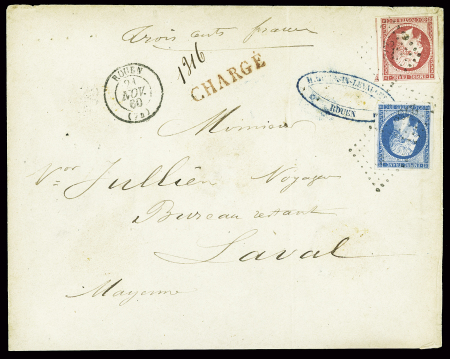 Trois cents francs
1916
CHARGÉ
ROUEN
NOV.
60
(74)
ROUEN
Monsieur
Vor Jullien Voyageur
Bureau restant
Laval
Mayenne